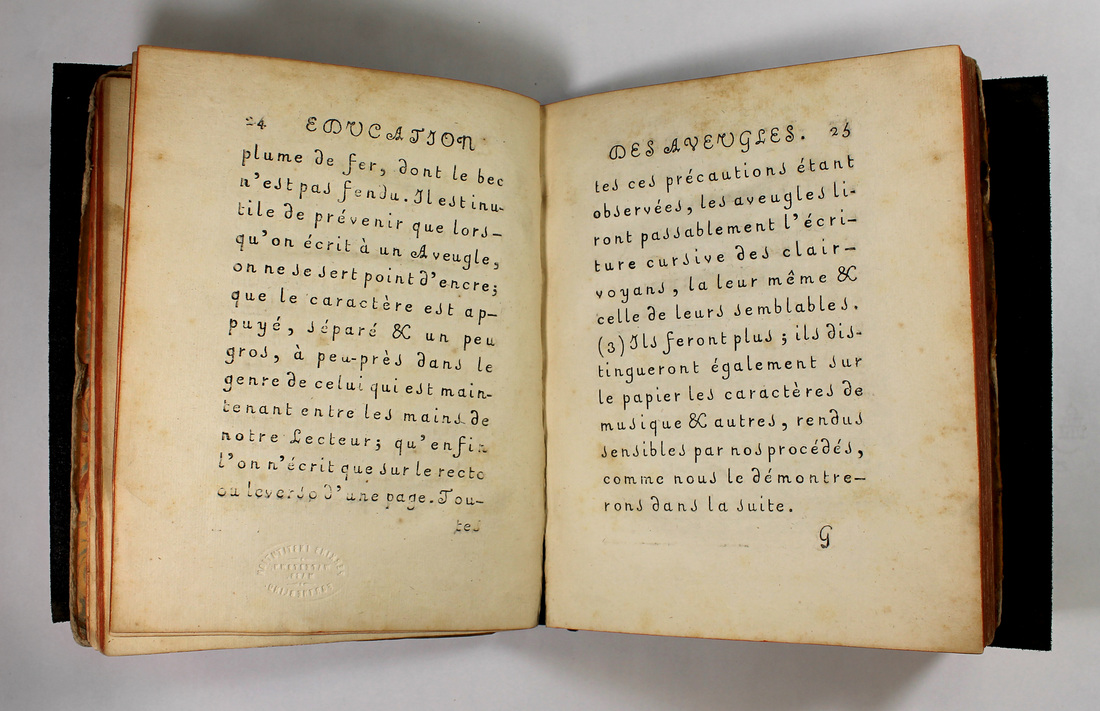 24 EDUCATION
plume de fer, dont le bec
n'est pas fendu. Il est inu-
tile de prévenir que lors-
qu'on écrit à un Aveugle,
on ne se sert point d'encre;
que le caractère est ap-
puyé, séparé & un peu
gros, à peu-près dans le
genre de celui qui est main-
tenant entre les mains de
notre Lecteur; qu'enfin
l'on n'écrit que sur le recto
ou le verso d'une page. Tou-
tes
DES AVEUGLES. 25
tes ces précautions étant
observées, les aveugles li-
ront passablement l'écri-
ture cursive des clair-
voyans, la leur même &
celle de leurs semblables.
(3) Ils feront plus; ils dis-
tingueront également sur
le papier les caractères de
musique & autres, rendus
sensibles par nos procédés,
comme nous le démontre-
rons dans la suite.
G